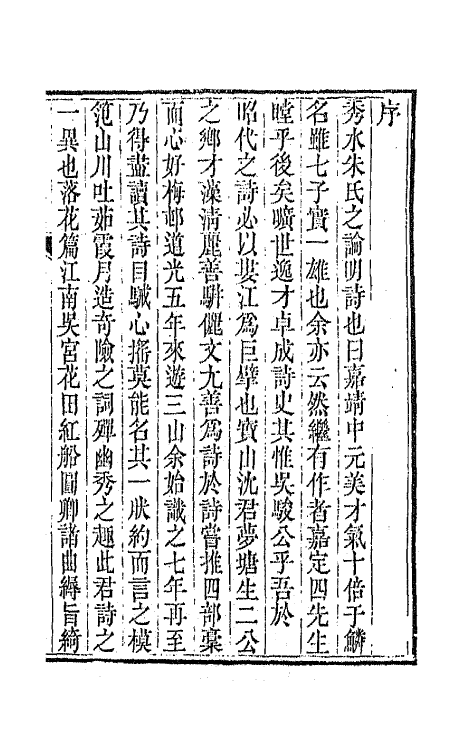 序
秀水朱氏之論明詩也曰嘉靖中元美才氣十倍于鱗
名雖七子實一雄也余亦云然繼有作者嘉定四先生
瞠乎後矣曠世逸才卓成詩史其惟吳駿公乎吾於
昭代之詩必以婁江爲巨擘也寶山沈君夢塘生二公
之鄉才藻淸麗善駢儷文尤善爲詩於詩嘗推四部藁
而心好梅邨道光五年來遊三山余始識之七年再至
乃得盡讀其詩目駴心搖莫能名其一狀約而言之模
范山川吐茹霞月造奇險之詞殫幽秀之趣此君詩之
一異也落花篇江南吳宮花田紅船圓卿諸曲縟旨綺